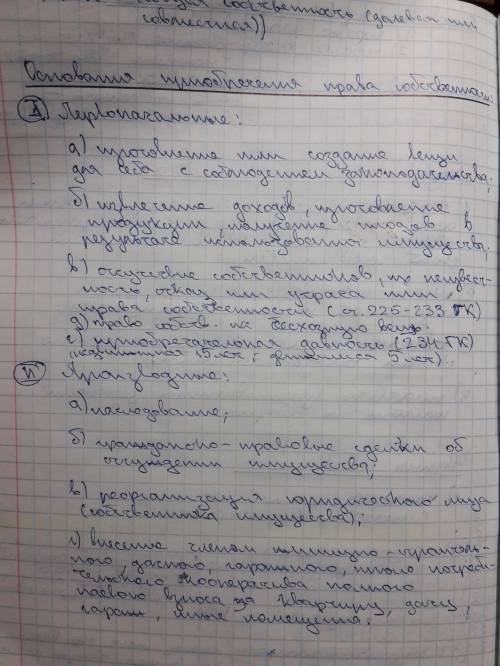 общая собственность (долевая или
совместная))
Основания приобретения права собственности:
I Первоначальные:
а) изготовление или создание вещи
для себя с соблюдением законодательства;
б) извлечение доходов, изготовление
продукции, получение плодов в
результате использования имущества;
в) отсутствие собственников, их неизвест-
ность, отказ или утрата ими
права собственности (ст. 225-233 ГК)
д) право собств. на бесхозную вещь.
е) приобретательная давность (234 ГК)
(недвижимая 15 лет; движимая 5 лет).
II Производные:
а) наследование;
б) гражданско-правовые сделки об
отчуждении имущества;
в) реорганизация юридического лица
(собственника имущества);
г) внесение членом жилищно-строитель-
ного, дачного, гаражного, иного потреби-
тельского кооператива полного
паевого взноса за квартиру, дачу,
гараж, иные помещения.